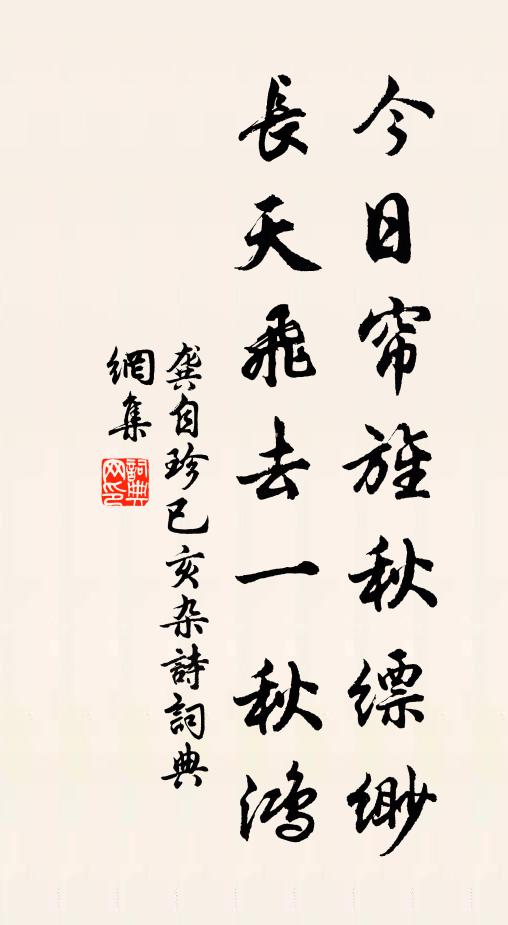 今日帘旌秋缥缈
長天飛去一秋鴻
龔自珍己亥杂詩詞典
網集
詞典網印